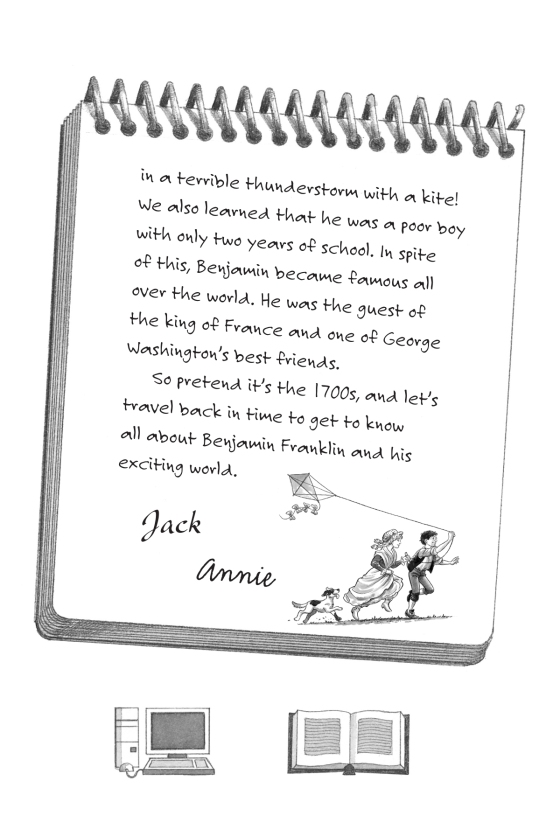 in a terrible thunderstorm with a kite!
We also learned that he was a poor boy
with only two years of school. In spite
of this, Benjamin became famous all
over the world. He was the guest of
the king of France and one of George
Washington's best friends.
So pretend it's the 1700s, and let's
travel back in time to get to know
all about Benjamin Franklin and his
exciting world.
Jack
Annie